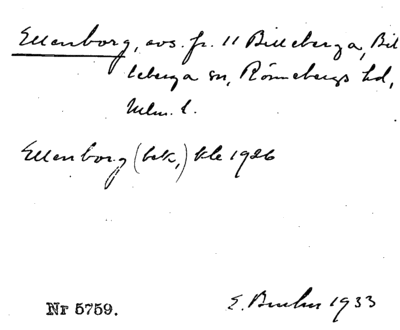 Ellenborg, avs. fr. 11 Billeberga, Bil
leberga sn, Rönnebergs hd,
Mlm. l.
Ellenborg (bek,) kle 1926
Nr 5759.
E. 1933